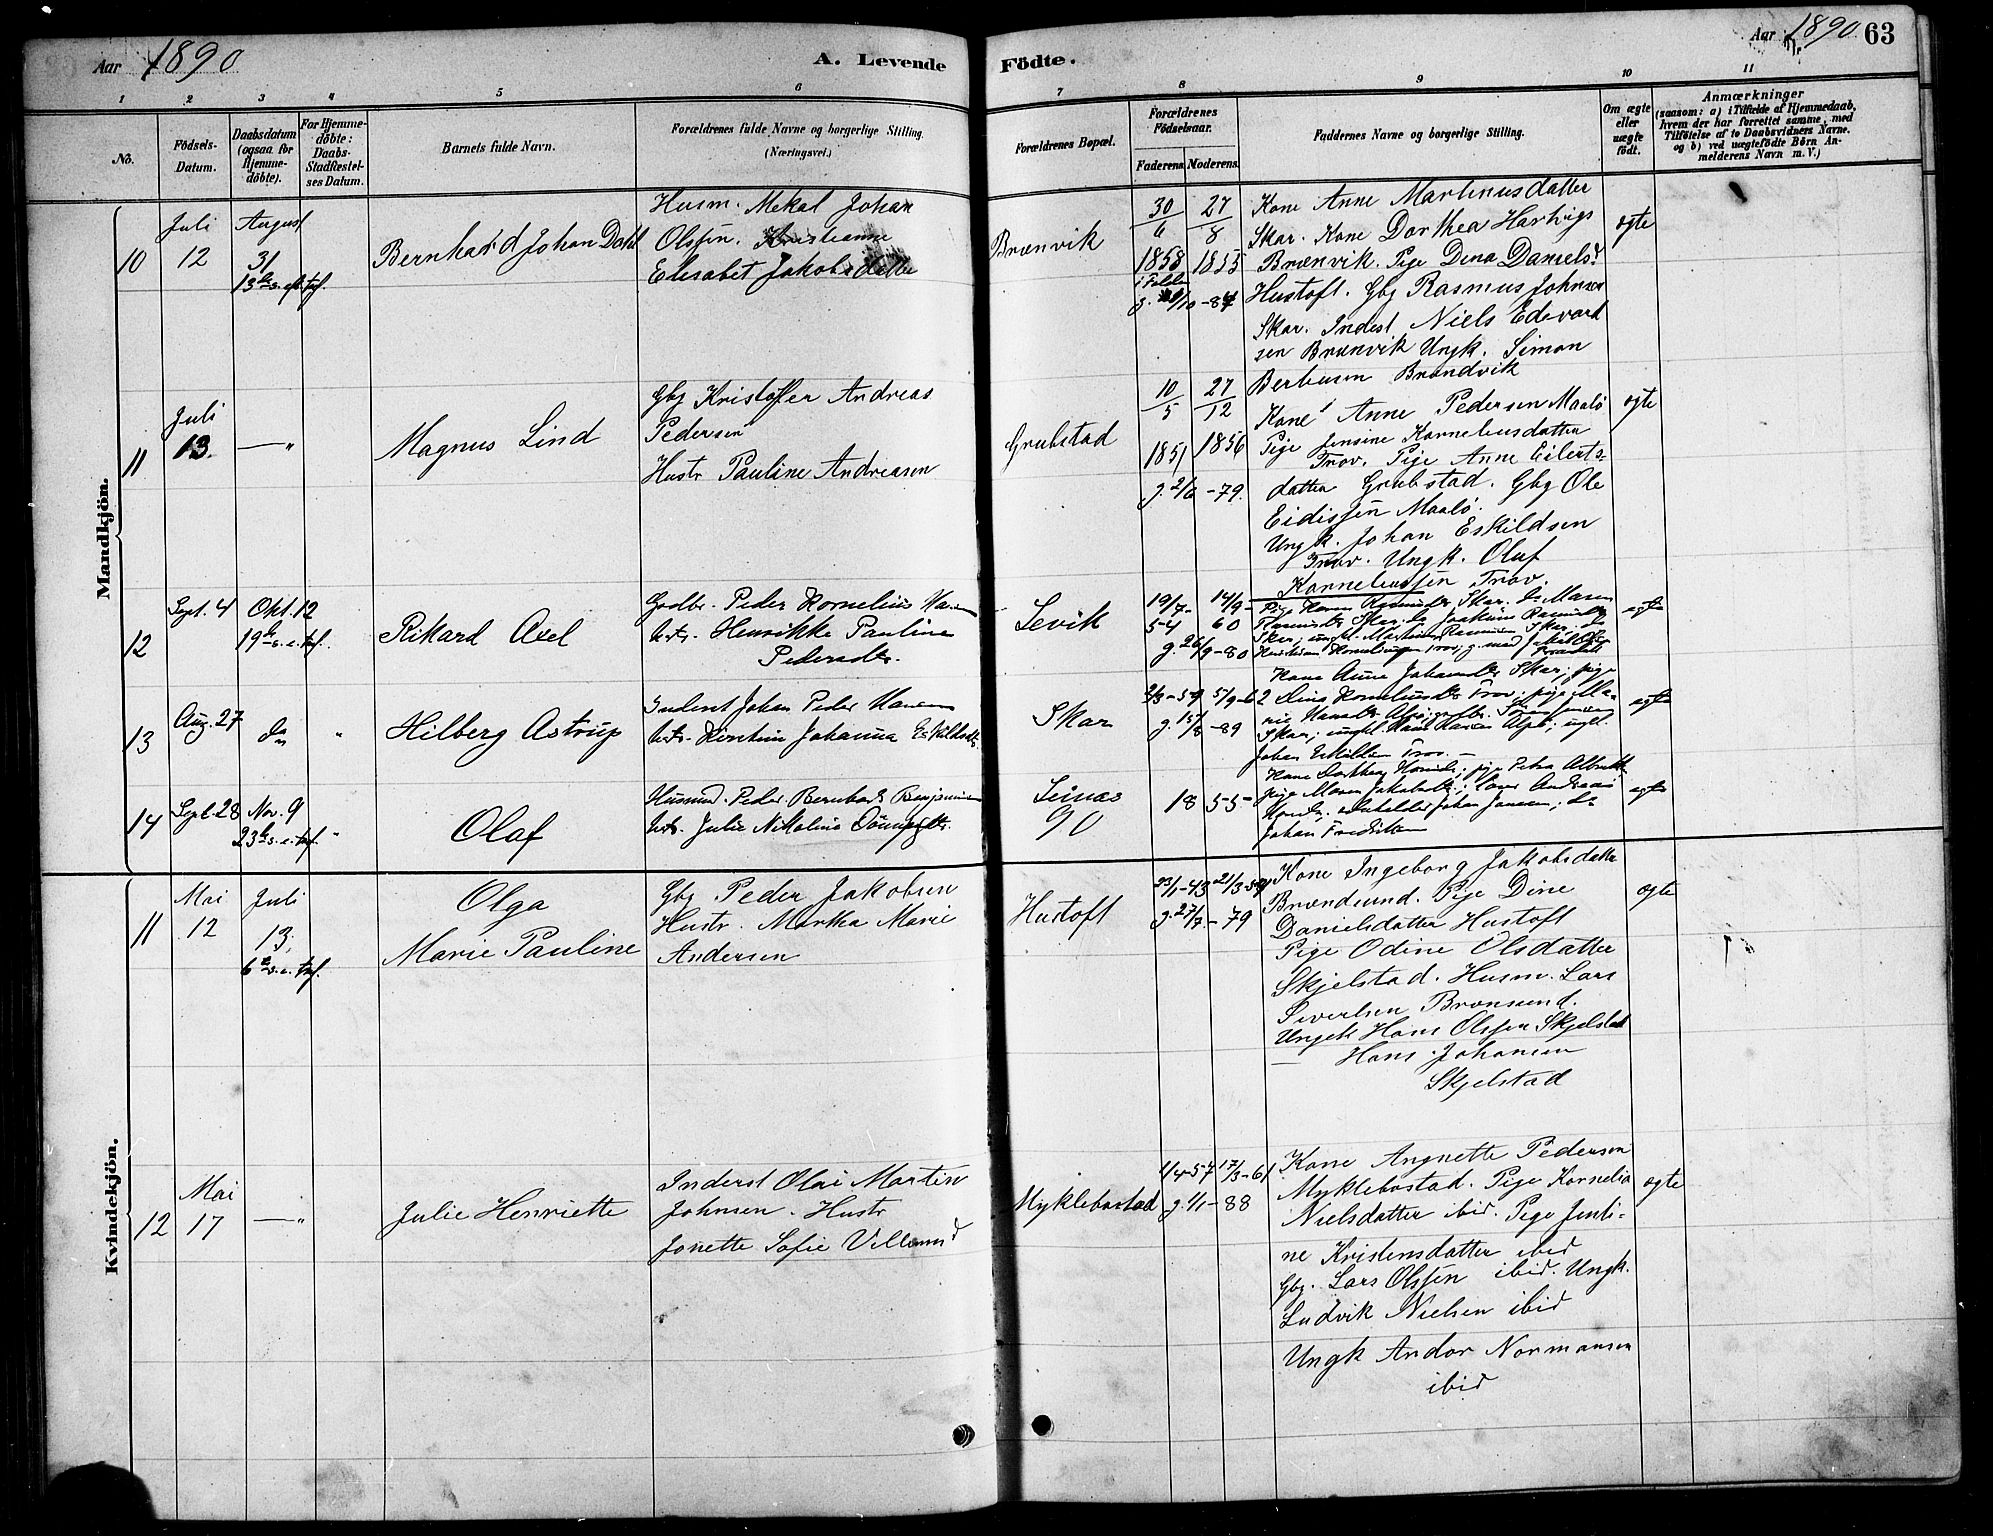 Aar 1890
A. Levende
Födte.
Aar 1890
63
1 2 3 4 5 6 7 8 9 10 11
No.
Födsels-
Datum.
Daabsdatum
(ogsaa for
Hjemme-
döbte).
For Hjemme-
döbte:
Daabs-
Stadfæstel-
ses Datum.
Barnets fulde Navn.
Forældrenes fulde Navne og borgerlige Stilling.
(Næringsvei.)
Forældrenes Bopæl.
Forældrenes
Födselsaar.
Faderens.
Moderens.
Faddernes Navne og borgerlige Stilling.
Om ægte
eller
uægte
födt.
Anmærkninger
(saasom: a) i Tilfælde af Hjemmedaab,
hvem der har forrettet samme, med
Tilföielse af to Daabsvidners Navne.
og b) ved uægtefödte Börn An-
melderens Navn m. V.)
Mandkjön.
10
Juli
12
August
31
13de s. eft. tref.
Bernhard Johan Dahl
Husm. Mekal Johan
Olssen. Kristianne
Elisabet Jakobsdatter
Brænvik
30
6
1858
27
8
1855
Kone Anne Martinusdatter
Skar. Kone Dorthea Hartvigs
Brænvik. Pige Dina Daniels
Hustoft. Gbg Rasmus Johnsen
Skar. Inderst Niels Edevard
sen Brænvik Ungk. Simon
Berhusen Brandvik
ægte
11
Juli
13.
— "
Magnus Lind
Gbg Kristoffer Andreas
Pedersen
Hustr Pauline Andreasen
Grubstad
10
5
1851
27
12
1856
g. 2/6 -79.
Kone Anne Pedersen Maalö
Pige Jensine Korneliusdatter
Trov. Pige Anne Eilerts-
datter Grubstad. Gbg Ole
Eidissen Maalö.
Ungk. Johan Eskildsen
Trov. Ungk. Oluf
Korneliussen Trov.
ægte
12
Sept. 4
Okt. 12
19de s. e. tref.
Rikard Axel
Gadbr. Peder Kornelius Han
Hstr. Henrikke Pauline
Pedersdtr.
Sevik
19/7-
54
14/9-
60
g. 26/9-80
ægte
13
Aug. 27
do
"
Hilberg Astrup
Inderst Johan Peder Hansen
Hstr. Kirstine Johanna Eskildsdtr.
Skar
Kone Anne Johansdtr Skar; pige
Johan Eskildsen Trov.
ægte
14
Sept. 28
Nov. 9
23de s. e. tref.
"
Olaf
Husmd. Peder Bernhard Benjaminsen
Hstr. Julie Nikoline
90
18 55-
Johan Fredriksen
ægte
Kvindekjön.
11
Mai
12
Juli
13,
6te s. e. tref.
Olga
Marie Pauline
Gbg Peder Jakobsen
Hustr. Martha Marie
Andersen
Hustoft
g. 27/7-79
Kone Ingeborg Jakobsdatter
Brændsund. Pige Dine
Danielsdatter Hustoft
Pige Odine Olsdatter
Skjelstad. Husm. Lars
Sivertsen Brænsund.
Ungk Hans Olssen Skjelstad
— Hans Johansen
Skjelstad
ægte
12
Mai
17
— "
Julie Henriette
Inderst Olai Martin
Johnsen. Hustr
Jonette Sofie Villumsd
Myklebostad
4/4-57
17/3-61
g. 1/1-88
Kone Angnette Pedersen
Myklebostad. Pige Kornelia
Nielsdatter ibid. Pige Jenti-
ne Kristensdatter ibid
Gbg. Lars Olssen ibid. Ungk.
Ludvik Nielsen ibid
Ungk Andor Normansen
ibid
ægte